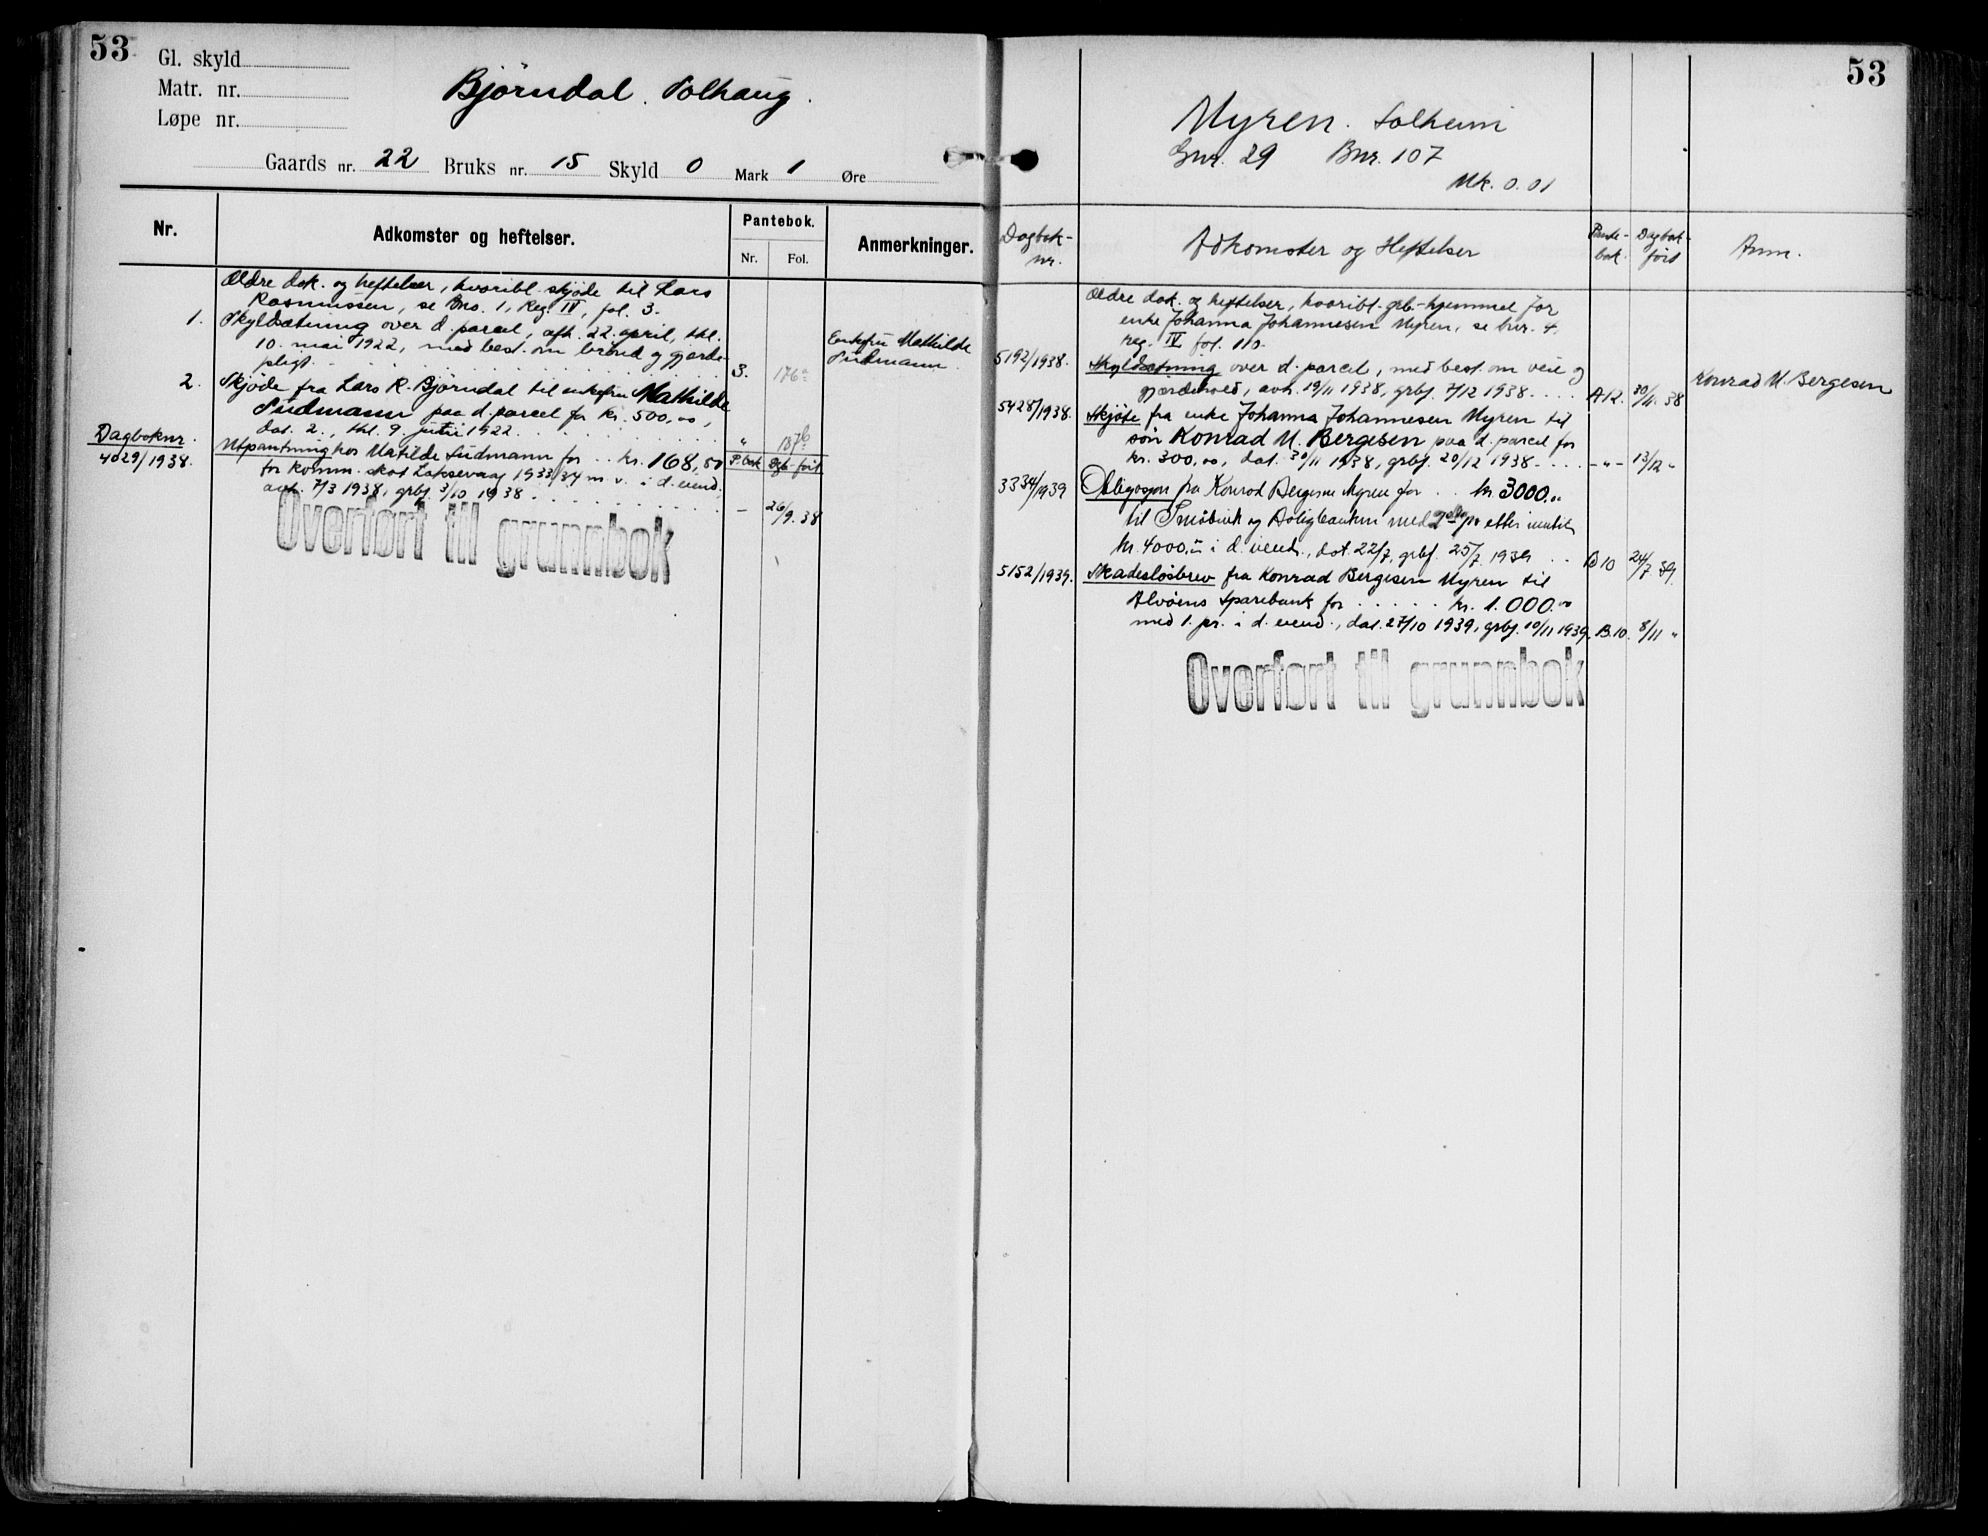 53
Gl. skyld
Matr. nr.
Løpe nr.
Bjørndal. Solhaug.
Gaards nr. 22 Bruks nr. 15 Skyld 0 Mark 1 Øre
Nr.
Adkomster og heftelser.
Pantebok.
Nr. Fol.
Anmerkninger.
Ældre dok. og heftelser, hvoribl. skjøde til Lars
Rasmussen, se Bno. 1, Reg. IV, fol. 3.
1. Skyldsætning over d. parcel, afh. 22. april, thl.
10. mai 1922, med best. om brønd og gjerde-
pligt. 3. 176a
Enkefru Mathilde
Sudmann.
2. Skjøde fra Lars R. Bjørndal til enkefru Mathilde
Sudmann paa d. parcel for kr. 500,00,
dat. 2., thl. 9. juni 1922. " 187b
Dagboknr. Utpantning hos Matilde Sudmann for .. kr. 168,50 P.bok Dgb-ført
4029/1938. for komm. skat Laksevaag 1933/34 m. v. i d. eiend.
avh. 7/3 1938, grbf. 3/10 1938. – 26/9.38
Overført til grunnbok
53
Myren. Solheim
Gnr. 29 Bnr. 107
Mk. 0.01
Dagbok-
nr.
Adkomster og Heftelser
Pante-
bok.
Dagbok-
ført
Anm.
Ældre dok. og heftelser, hvoribl. grb-hjemmel for
enke Johanna Johannesen Myren, se bnr. 4.
reg. IV fol. 110.
5192/1938. Skyldsætning over d. parcel, med best. om veie og
gjærdehold, avh. 19/11 1938, grbf. 7/12 1938. .... A12. 30/11.38
Konrad M. Bergesen
5428/1938. Skjøte fra enke Johanna Johannesen Myren til
søn Konrad M. Bergesen paa d. parcel for
kr. 300,00, dat. 30/11 1938, grbf. 20/12 1938 .... –"– 13/12 "
3334/1939 Obligasjon fra Konrad Bergesen Myren for .. kr. 3000.00
til Småbruk og Boligbanken med pr. etter inntil
kr. 4000,00 i d. eiend., dat. 22/7, grbf. 25/7 1939 .. B 10 24/7 39.
5152/1939. Skadesløsbrev fra Konrad Bergesen Myren til
Alvøens Sparebank for ...... kr. 1.000.00
med 1. pr. i d. eiend., dat. 27/10 1939, grbf. 10/11 1939. B.10. 8/11 "
Overført til grunnbok